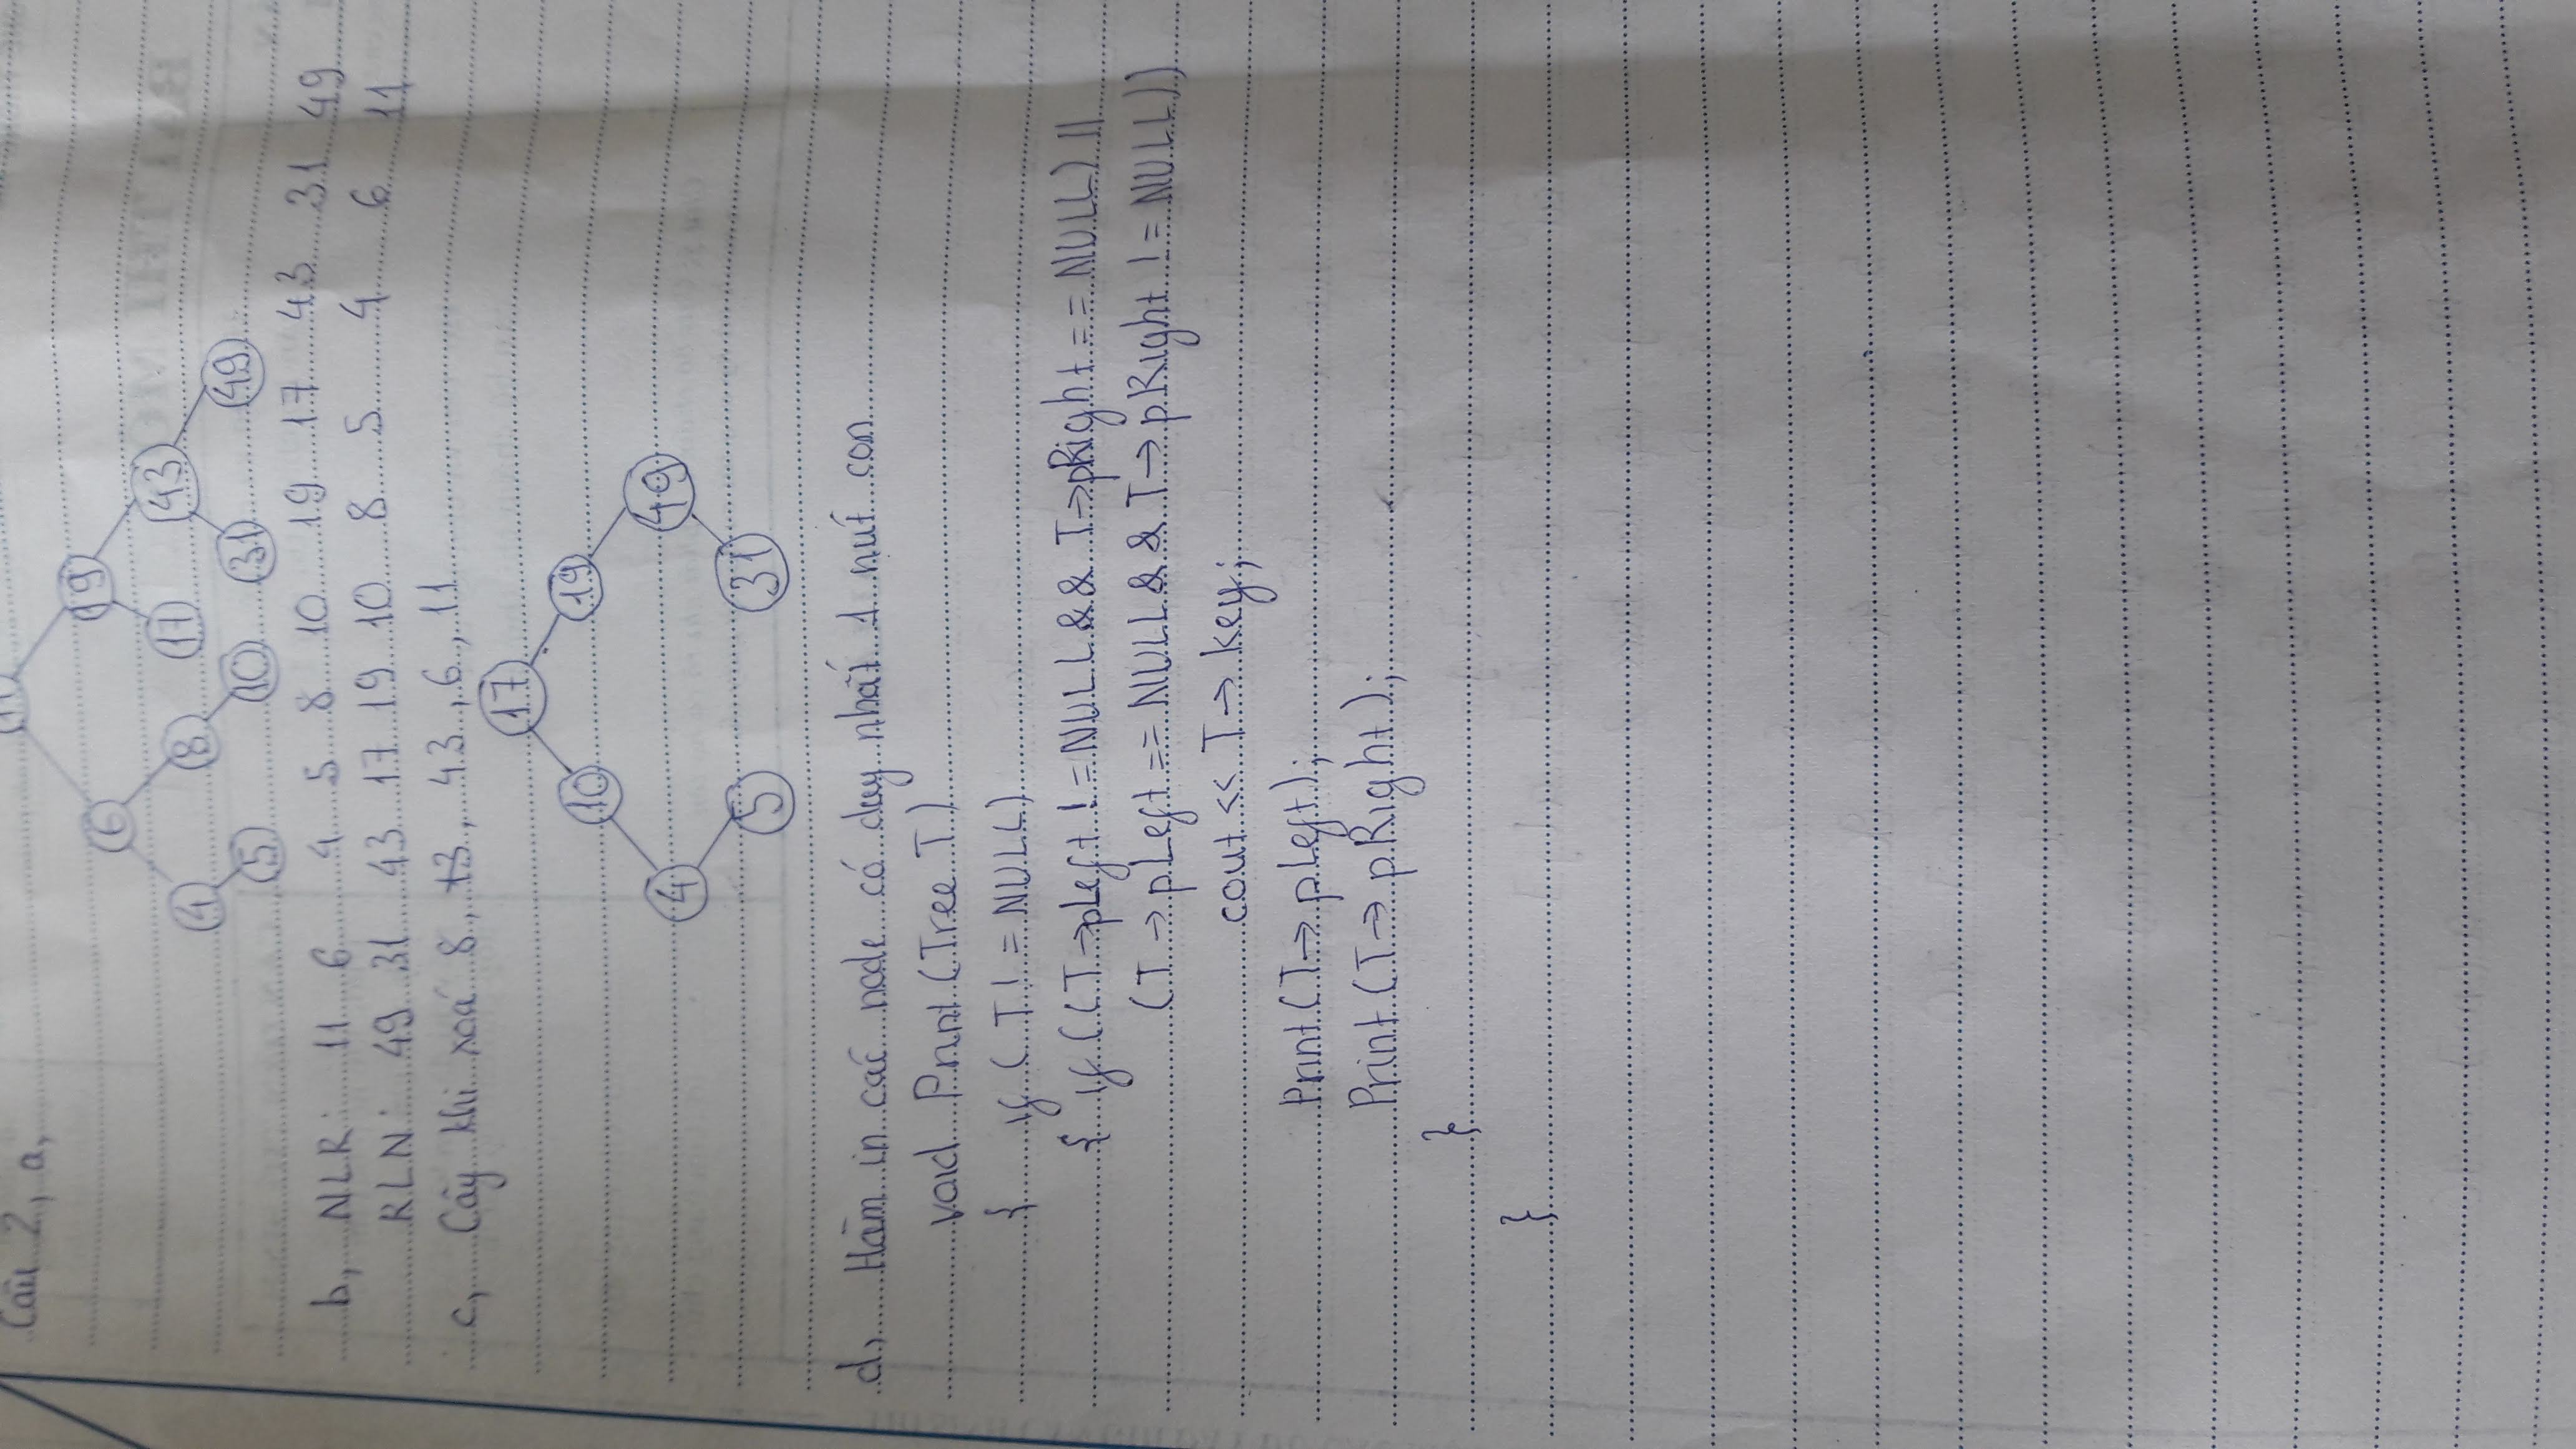 Câu 2, a,
11
6 19
4 8 17 43
5 10 31 49
b, NLR: 11 6 4 5 8 10 19 17 43 31 49
RLN: 49 31 43 17 19 10 8 5 4 6 11
c, Cây khi xoá 8, 13, 43, 6, 11
17
10 19
4 49
5 31
d, Hàm in các node có duy nhất 1 nút con
void Print (Tree T)
{ if ( T != NULL)
{ if ((T->pLeft != NULL && T->pRight == NULL) ||
(T -> pLeft == NULL && T-> pRight != NULL))
cout << T-> key;
Print (T-> pLeft);
Print (T-> pRight);
}
}